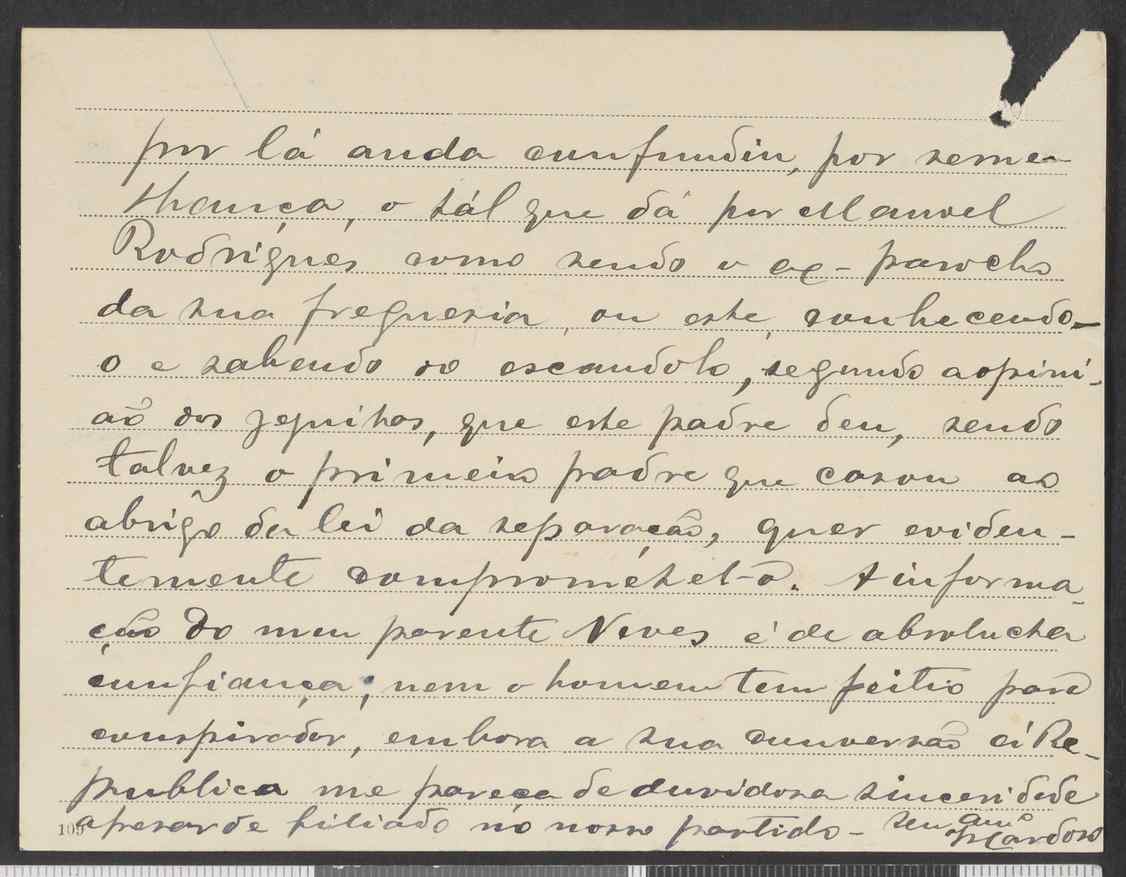 por lá anda confundiu, por seme-
lhança, o tál que dá por Manoel
Rodrigues como sendo o ex-parocho
da sua freguesia, ou este, conhecendo-
o e sabendo do escandolo, segundo a opini-
aõ dos jesuitas, que este padre deu, sendo
talvez o primeiro padre que casou ao
abrigo da lei da separação, quer eviden-
temente comprometel-o. A informa-
ção do meu parente Neves é de absolucta
confiança; nem o homem tem feitio para
conspirador, embora a sua conversaõ á Re-
publica me pareça de duvidosa sinceridade
apesar de filiado no nosso partido - Seu am.º
Cardoso